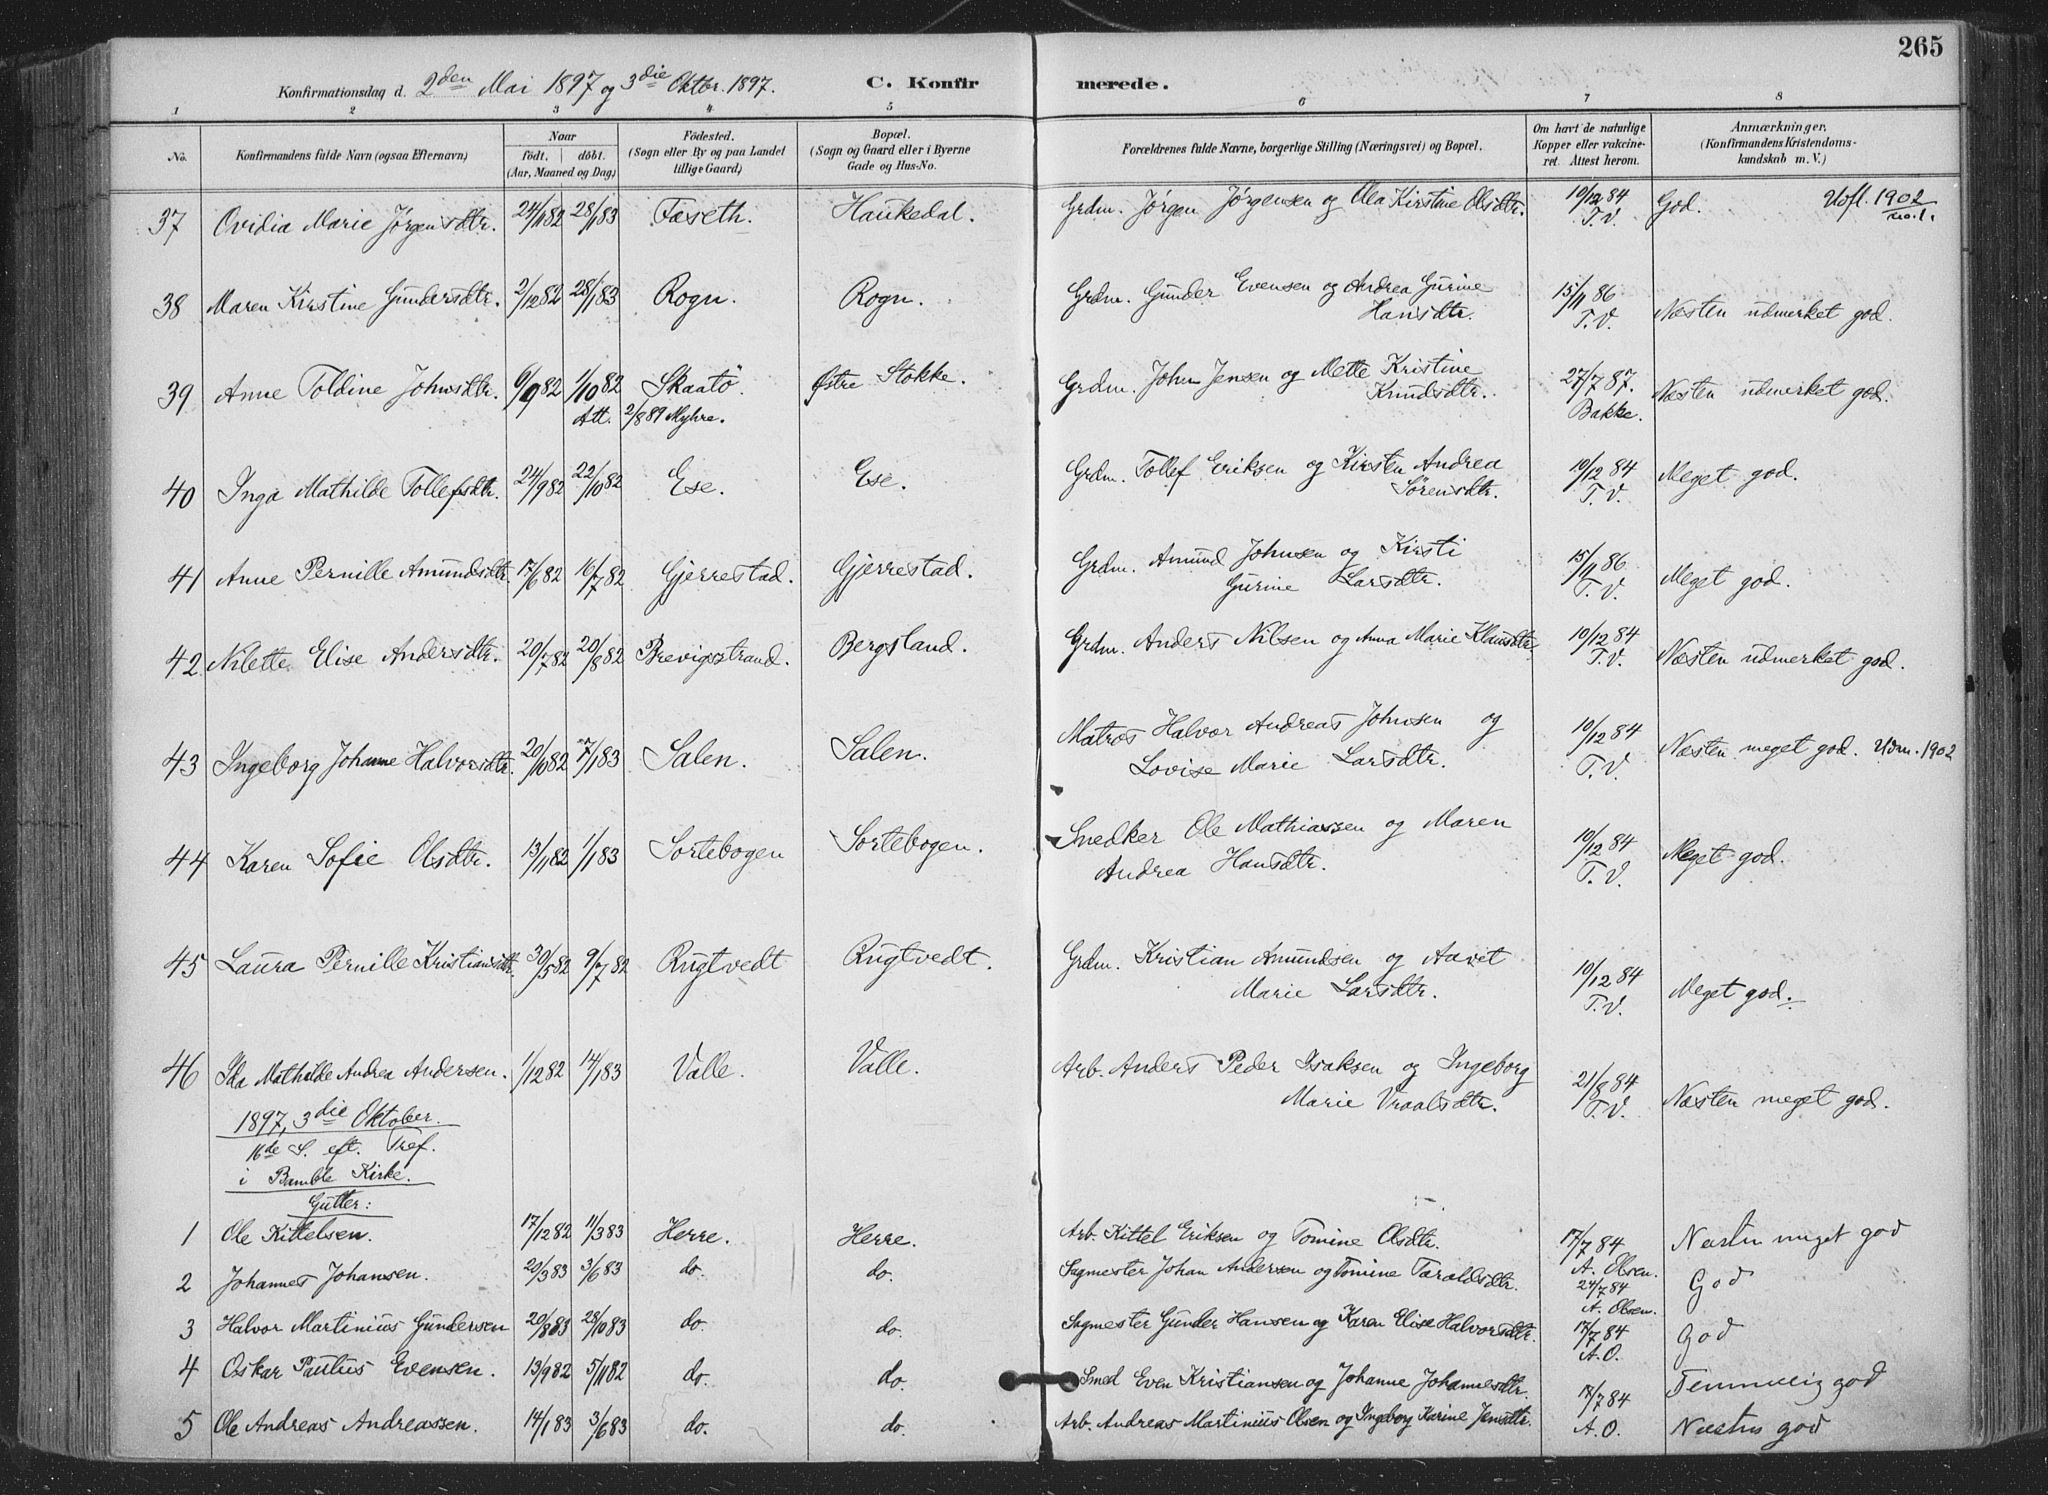 265
Konfirmationsdag d. 2den Mai 1897 og 3die Oktbr. 1897. C. Konfirmerede.
1 2 3 4 5 6 7 8
No. Konfirmandens fulde Navn (ogsaa Efternavn) Naar født, døbt. (Aar, Maaned og Dag) Fødested. (Sogn eller By og paa Landet tillige Gaard) Bopæl. (Sogn og Gaard eller i Byerne Gade og Hus-No. Forældrenes fulde Navne, borgerlige Stilling (Næringsvei) og Bopæl. Om havt de naturlige Kopper eller vakcineret. Attest herom. Anmærkninger. (Konfirmandens Kristendomskundskab m. V.)
37 Ovidia Marie Jørgensdtr. 24/11 82 28/1 83 Fæseth. Haukedal. Grdm. Jørgen Jørgensen og Olea Kirstine Olsdtr. 10/12 84 T.V. God. Udfl. 1902 no. 1.
38 Maren Kirstine Gundersdtr. 2/12 82 28/1 83 Rogn. Rogn. Grdm. Gunder Evensen og Andrea Gurine
Hansdtr. 15/11 86 T.V. Næsten udmerket god.
39 Anne Toldine Johnsdtr. 6/9 82 1/10 82 Skaatö. Østre Stokke. Grdm. John Jensen og Mette Kristine
Att. 2/8 89 Myhre. Knudsdtr. 27/7 87. Bakke. Næsten udmerket god.
40 Inga Mathilde Tollefsdtr. 24/9 82 22/10 82 Ese. Ese. Grdm. Tollef Eriksen og Kirsten Andrea
Sörensdtr. 10/12 84 T.V. Meget god.
41 Anne Pernille Amundsdtr. 17/6 82 16/7 82 Gjerrestad. Gjerrestad. Grdm. Amund Johnsen og Kirsti
Gurine Larsdtr. 15/11 86 T.V. Meget god.
42 Nilette Elise Andersdtr. 20/7 82 20/8 82 Brevigsstrand. Bergsland. Grdm. Anders Nilsen og Anna Marie Klausdtr. 10/12 84 T.V. Næsten udmerket god.
43 Ingeborg Johanne Halvorsdtr. 20/10 82 7/1 83 Salen. Salen. Matros Halvor Andreas Johnsen og
Lovise Marie Larsdtr. 10/12 84 T.V. Næsten meget god. Udm. 1902
44 Karen Sofie Olsdtr. 13/11 82 1/1 83 Sortebogen Sortebogen. Snedker Ole Mathiassen og Maren
Andrea Hansdtr. 10/12 84 T.V. Meget god.
45 Laura Pernille Kristiansdtr. 30/5 82 9/7 82 Rugtvedt Rugtvedt. Grdm. Kristian Amundsen og Aavet
Marie Larsdtr. 10/12 84 T.V. Meget god.
46 Ida Mathilde Andrea Andersen. 1/12 82 14/1 83 Valle. Valle. Arb. Anders Peder Isaksen og Ingeborg
Marie Vraalsdtr. 21/8 84 T.V. Næsten meget god.
1897, 3die Oktober.
16de S. eft. Tref.
i Bamble Kirke.
Gutter:
1 Ole Kittelsen. 17/12 82 11/3 83 Herre. Herre. Arb. Kittel Eriksen og Tomine Olsdtr. 17/7 84 A. Olsen. Næsten meget god
2 Johannes Johansen. 20/3 83 3/6 83 do. do. Sagmester Johan Andersen og Tomine Taraldsdtr. 24/7 84 A. Olsen. God
3 Halvor Martinius Gundersen 20/8 83 28/10 83 do. do. Sagmester Gunder Hansen og Karen Elise Halvorsdtr. 17/7 84 A.O. God
4 Oskar Paulus Evensen. 13/9 82 5/11 82 do. do. Smed Even Kristiansen og Johanne Johannesdtr. 17/7 84 Temmelig god
5 Ole Andreas Andreassen. 14/1 83 3/6 83 do. do. Arb. Andreas Martinius Olsen og Ingeborg Karine Jensdtr. A.O. Næsten god